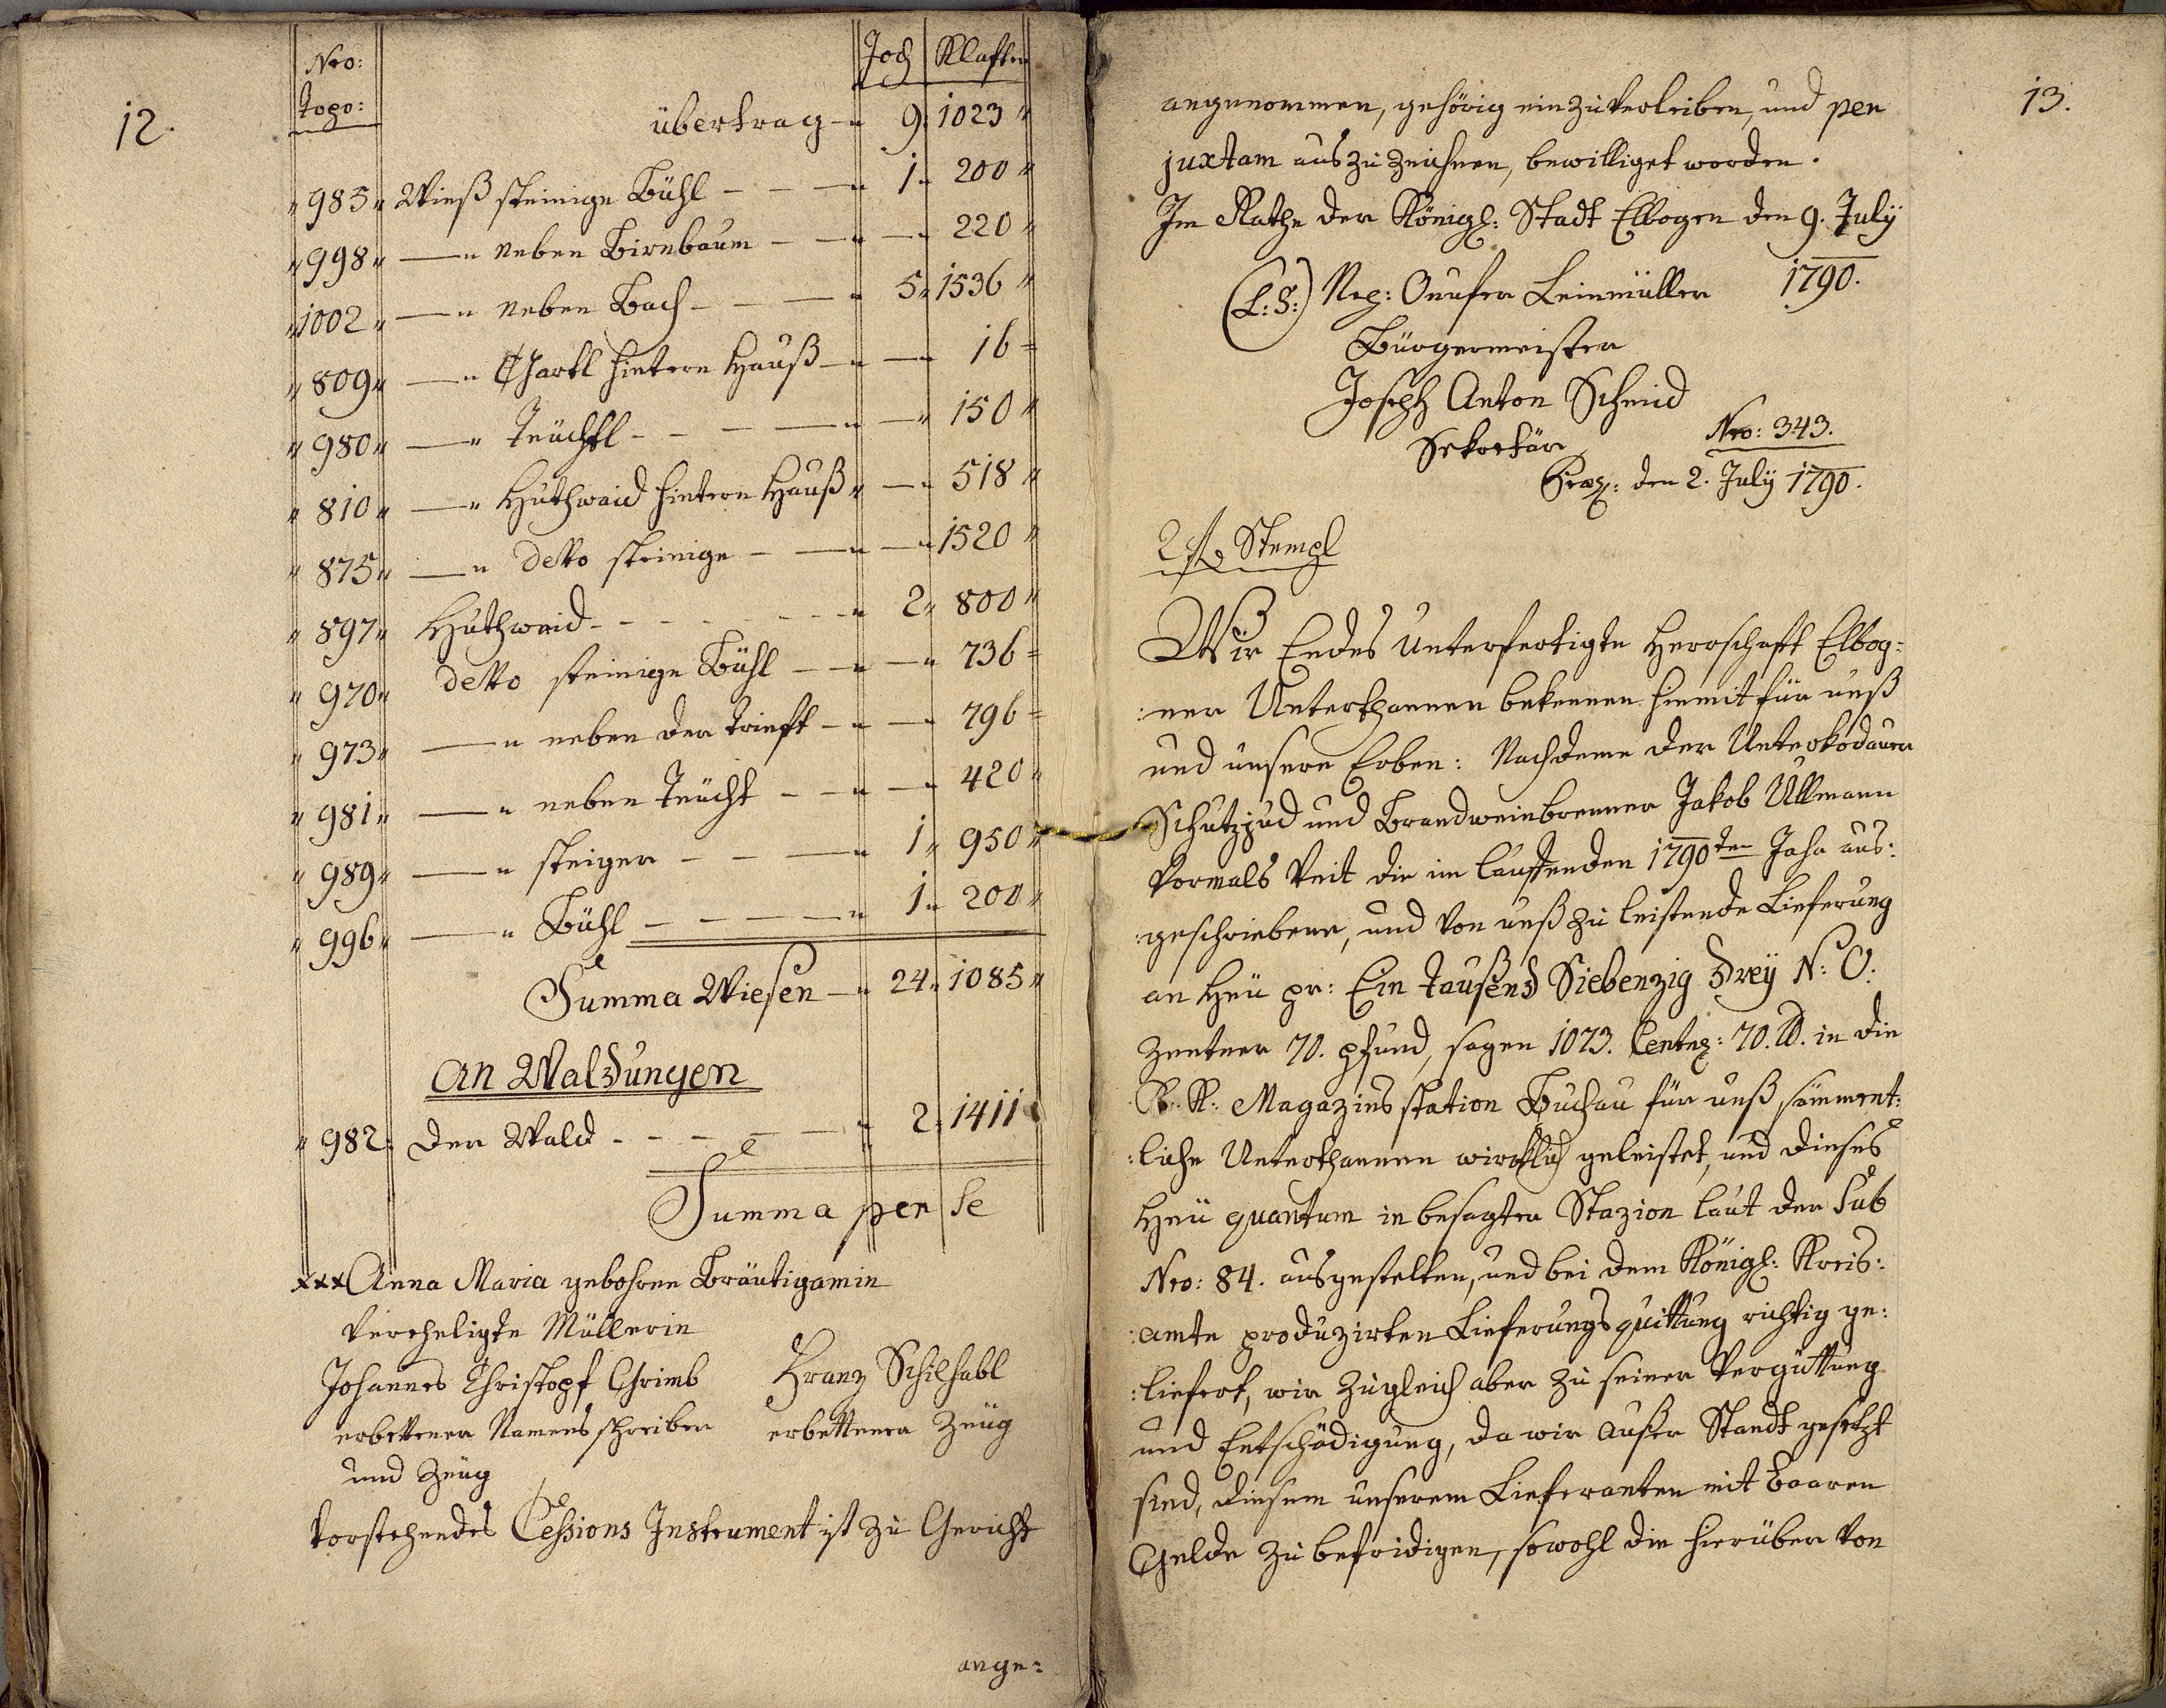 12.
Nro: topo: Joch Klafter
übertrag 9. 1023 "
" 985 " Wieß steinige Bühl - - - " 1 " 200 "
" 998 " — " neben Birnbaum - - " — " 220 "
" 1002 " — " neben Bach - - - " 5 " 1536 "
" 809 " — " Gartl hintern Hauß - " — " 16 =
" 980 " — " Teüchtl - - - - " — " 150 "
" 810 " — " Huthwaid hintern Hauß " — " 518 "
" 875 " — " detto steinige - - " — " 1520 "
" 897 " Huthwaid - - - - - " 2 " 800 "
" 970 " detto steinige Bühl - - " — " 736 =
" 973 " — " neben der Trieft - " — " 796 =
" 981 " — " neben Teücht - - " — " 420 "
" 989 " — " steiger - - - " 1 " 950 "
" 996 " — " Bühl - - - - " 1 " 200 "
Summa Wiesen — " 24 " 1085 "
An Waldungen
" 982 : der Wald - - - - " 2 " 1411
Summa per se
xxx Anna Maria gebohrne Bräutigamin
vereheligte Müllerin
Johannes Christopf Grimb
erbettener Namensschreiber
und Zeüg
Franz Schilhabl
erbettener Zeüg
Vorstehendes Cessions Instrument ist zu Gericht
ange=
13.
angenommen, gehörig einzuverleiben, und per
juxtam auszuzeichnen, bewilliget worden.
Im Rathe der Königl: Stadt Elbogen den 9. July
1790.
(L:S:) Onufer Leinmüller
Bürgermeister
Joseph Anton Schmid
Sekretär
Nro: 343.
Præs: den 2. July 1790.
2 f Stempl
Wir Endes Unterfertigte Herrschaft Elbog=
:ner Unterthannen bekennen hiemit für unß
und unsere Erben: Nachdeme der Unterkodauer
Schutzjud und Brandweinbrenner Jakob Ullmann
vormals Veit die im lauffenden 1790ten Jahr aus:
:geschriebene, und von unß zu leistende Lieferung
an Heü pr: Ein tausend Siebenzig Drey N: Ö:
Zentner 70. Pfund, sagen 1073. Centn: 70. ℔. in die
K: K: Magazinsstation Buchau für unß, sämment:
:liche Unterthannen wircklich geleistet, und dieses
Heü quantum in besagter Stazion laut der sub
Nro: 84. ausgestelten, und bei dem Königl: Kreis:
:amte produzirten Lieferungsquittung richtig ge:
:liefert, wir zugleich aber zu seiner Vergüttung
und Entschädigung, da wir außer Standt gesetzt
sind, diesem unserem Lieferanten mit baaren
Gelde zu befridigen, sowohl die hierüber von